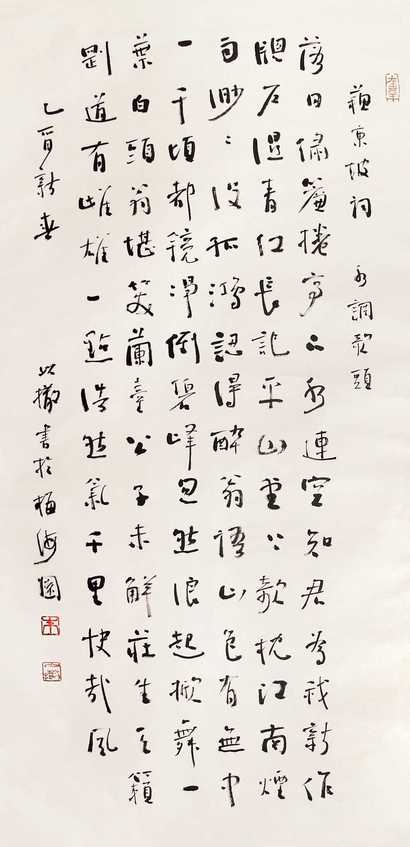 蘇東坡詞 水調歌頭
落日繡簾捲亭下水連空知君為我新作
牕戶溼青紅長記平山堂上欹枕江南煙
雨渺渺沒孤鴻認得醉翁語山色有無中
一千頃都鏡淨倒碧峰忽然浪起掀舞一
葉白頭翁堪笑蘭臺公子未解莊生天籟
剛道有雌雄一點浩然氣千里快哉風
乙酉新春 以撒書於梅海園